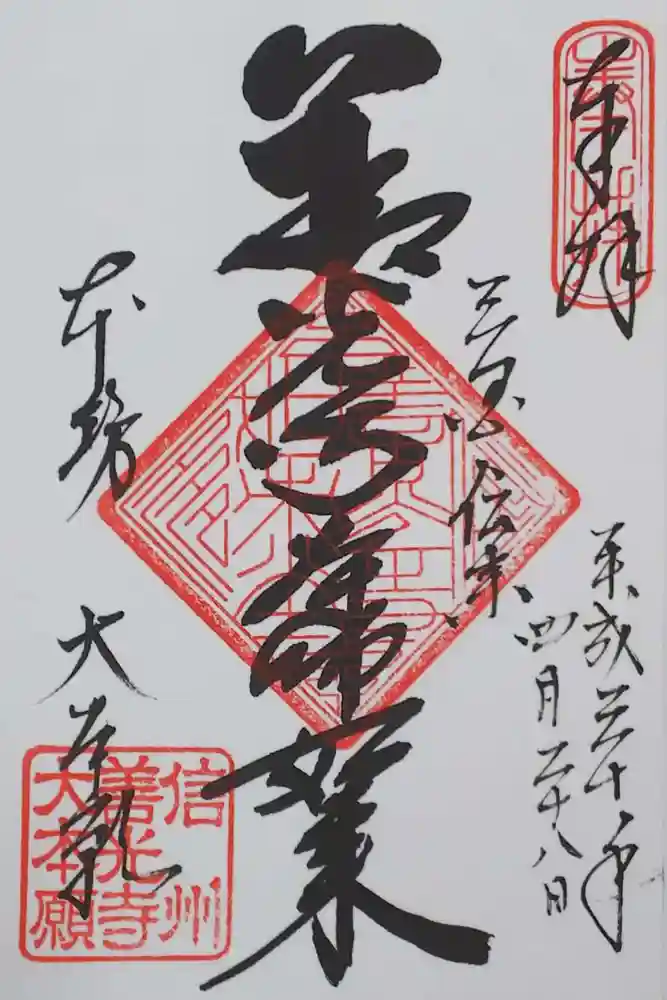 奉拝
平成三十年
四月二十八日
三国伝来
善光寺
如来
本坊
大本願
信州
善光寺
大本願